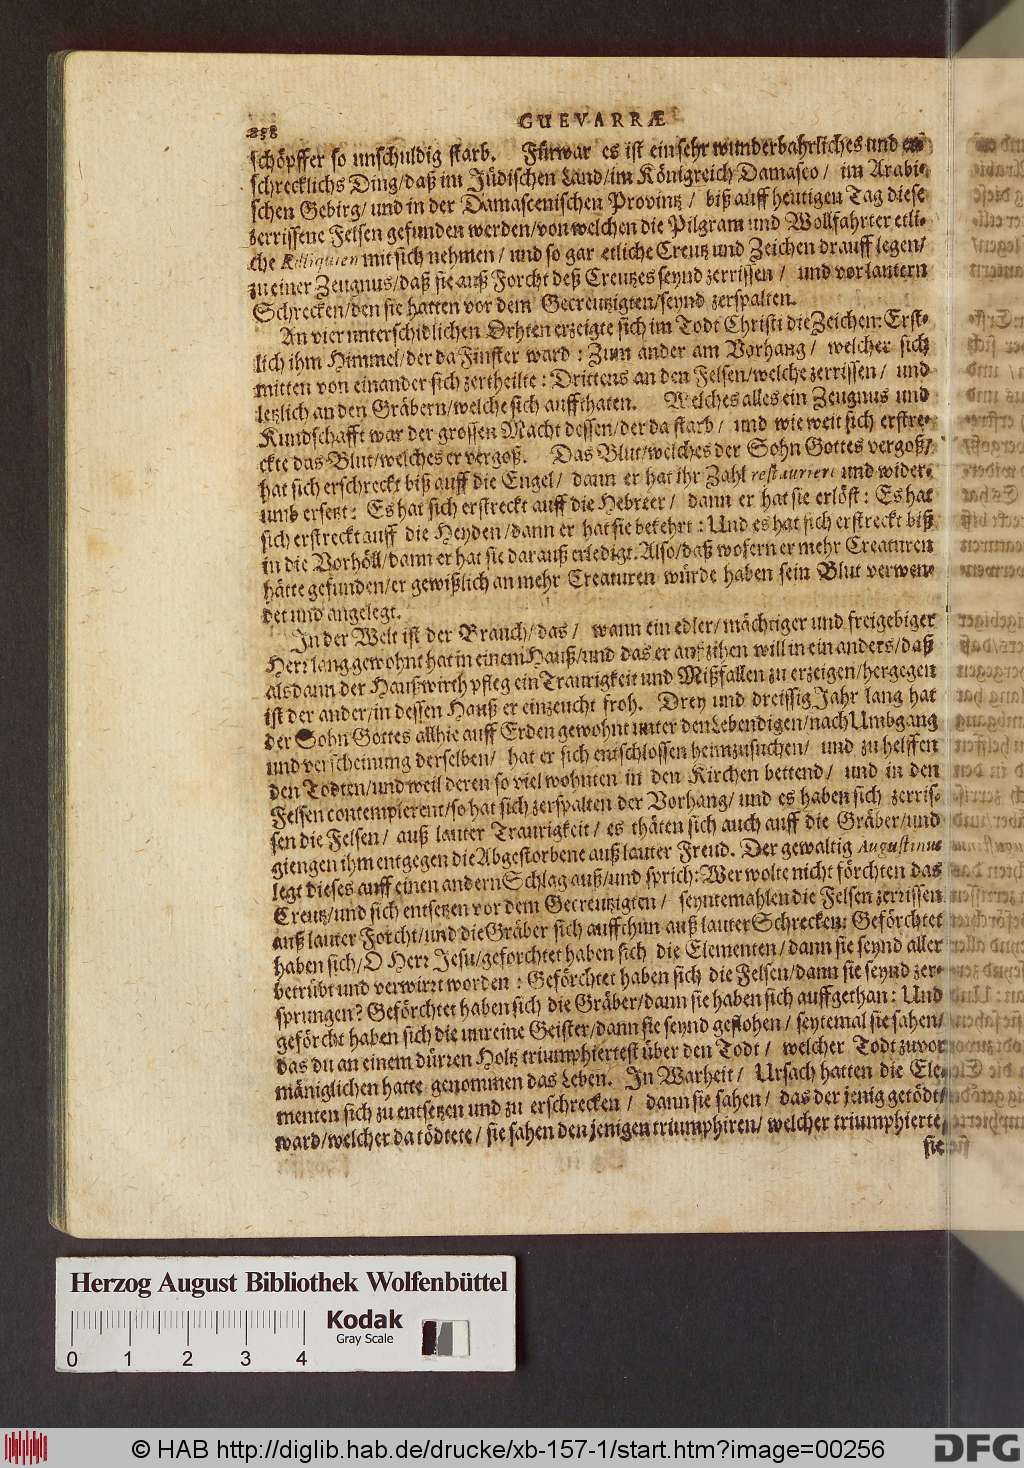 258
GUEVARRÆ
schöpffer so unschuldig starb. Fürwar es ist ein sehr wunderbahrliches und er-
schrecklichs Ding/daß im Jüdischen Land/im Königreich Damasco/ im Arabi-
schen Gebirg/ und in der Damascenischen Provintz/ biß auff heutigen Tag diese
zerrissene Felsen gefunden werden/von welchen die Pilgram und Wollfahrter etli-
che Relliquien mit sich nehmen/ und so gar etliche Creutz und Zeichen drauff legen/
zu einer Zeugnus/daß sie auß Forcht deß Creutzes seynd zerrissen/ und vor lautern
Schrecken/den sie hatten vor dem Gecreutzigten/seynd zerspalten.
An vier unterschidlichen Orhten erzeigte sich im Todt Christi die Zeichen: Erst-
lich ihm Himmel/der da Finster ward: Zum ander am Vorhang/ welcher sich
mitten von einander sich zertheilte: Drittens an den Felsen/welche zerrissen/ und
letzlich an den Gräbern/welche sich auffthaten. Welches alles ein Zeugnus und
Kundschafft war der grossen Macht dessen/der da starb/ und wie weit sich erstre-
ckte das Blut/welches er vergoß. Das Blut/welches der Sohn Gottes vergoß/
hat sich erschreckt biß auff die Engel/ dann er hat ihr Zahl restauriert und wider-
umb ersetzt: Es hat sich erstreckt auff die Hebreer/ dann er hat sie erlöst: Es hat
sich erstreckt auff die Heyden/dann er hat sie bekehrt: Und es hat sich erstreckt biß
in die Vorhöll/dann er hat sie darauß erledigt. Also/daß wofern er mehr Creaturen
hätte gefunden/er gewißlich an mehr Creaturen würde haben sein Blut verwen-
det und angelegt.
In der Welt ist der Brauch/das/ wann ein edler/mächtiger und freigebiger
Herr lang gewohnt hat in einem Hauß/und das er aufzihen will in ein anders/daß
alsdann der Haußwirth pfleg ein Traurigkeit und Mißfallen zu erzeigen/hergegen
ist der ander/in dessen Hauß er einzeucht froh. Drey und dreissig Jahr lang hat
der Sohn Gottes allhie auff Erden gewohnt unter den Lebendigen/nach Umbgang
und verscheinung derselben/ hat er sich entschlossen heimzusuchen/ und zu helffen
den Todten/und weil deren so viel wohnten in den Kirchen bettend/ und in den
Felsen contemplerent/so hat sich zerspalten der Vorhang/ und es haben sich zerris-
sen die Felsen/ auß lauter Traurigkeit/ es thäten sich auch auff die Gräber/und
giengen ihm entgegen die Abgestorbene auß lauter Freud. Der gewaltig Augustinus
legt dieses auff einen andern Schlag auß/und sprich: Wer wolte nicht förchten das
Creutz/und sich entsetzen vor dem Gecreutzigten/ seyntemahlen die Felsen zerrissen
auß lauter Forcht/und die Gräber sich auffthun auß lauter Schrecken: Geförchtet
haben sich/O Herr Jesu/geforchtet haben sich die Elementen/dann sie seynd aller
betrübt und verwirrt worden: Geförchtet haben sich die Felsen/dann sie seynd zer-
sprungen? Geförchtet haben sich die Gräber/dann sie haben sich auffgethan: Und
geförcht haben sich die unreine Geister/dann sie seynd geflohen/ seytemal sie sahen/
das du an einem dürren Holtz triumphiertest über den Todt/ welcher Todt zuvor
mäniglichen hatte genommen das Leben. In Warheit/ Ursach hatten die Ele-
menten sich zu entsetzen und zu erschrecken/ dann sie sahen/ das der jenig getödt/
ward/welcher da tödtete/ sie sahen den jenigen triumphiren/ welcher triumphierte/
sie
Herzog August Bibliothek Wolfenbüttel
Kodak
Gray Scale
0 1 2 3 4
© HAB http://diglib.hab.de/drucke/xb-157-1/start.htm?image=00256
DFG